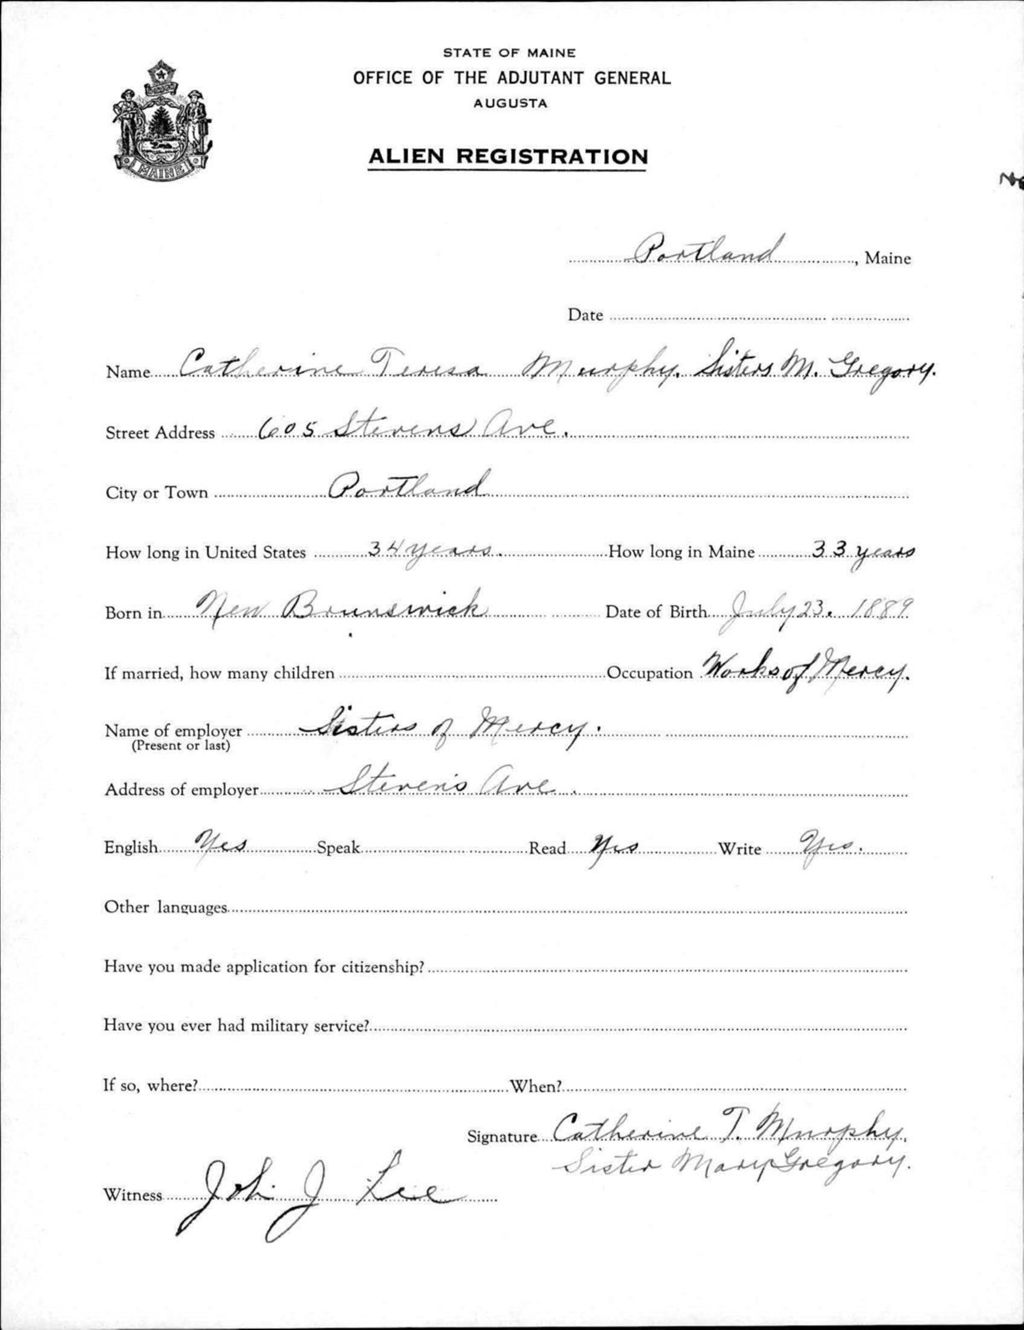 STATE OF MAINE
OFFICE OF THE ADJUTANT GENERAL
AUGUSTA
ALIEN REGISTRATION
MAINE
Portland, Maine
Date
Name Catherine Teresa Murphy. Sisters M. Gregory.
Street Address 605 Stevens Ave.
City or Town Portland
How long in United States 34 years. How long in Maine 33 years
Born in New Brunswick Date of Birth July 23. 1889
If married, how many children Occupation Works of Mercy.
Name of employer Sisters of Mercy.
(Present or last)
Address of employer Steven's Ave.
English Yes Speak Read Yes Write Yes.
Other languages
Have you made application for citizenship?
Have you ever had military service?
If so, where? When?
Signature Catherine T. Murphy.
Sister Mary Gregory.
Witness John J Lee